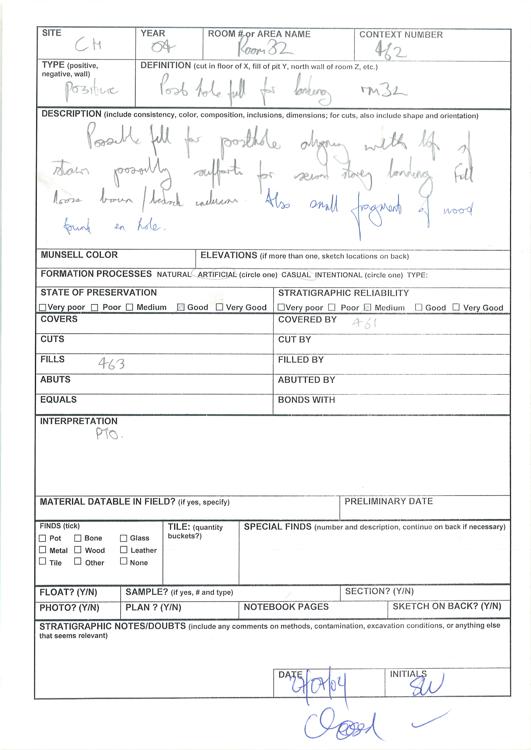 SITE CH
YEAR 04
ROOM # or AREA NAME Room 32
CONTEXT NUMBER 462
TYPE (positive, negative, wall) Positive
DEFINITION (cut in floor of X, fill of pit Y, north wall of room Z, etc.)
Post hole fill for landing rm32
DESCRIPTION (include consistency, color, composition, inclusions, dimensions; for cuts, also include shape and orientation)
Possible fill for posthole aligning with top of
stairs possibly supports for second storey landing Fill
loose brown / inclusion. Also small fragments of wood
found in hole.
MUNSELL COLOR
ELEVATIONS (if more than one, sketch locations on back)
FORMATION PROCESSES NATURAL ARTIFICIAL (circle one) CASUAL INTENTIONAL (circle one) TYPE:
STATE OF PRESERVATION
STRATIGRAPHIC RELIABILITY
Very poor Poor Medium Good Very Good
Very poor Poor Medium Good Very Good
COVERS
COVERED BY 461
CUTS
CUT BY
FILLS 463
FILLED BY
ABUTS
ABUTTED BY
EQUALS
BONDS WITH
INTERPRETATION
PTO.
MATERIAL DATABLE IN FIELD? (if yes, specify)
PRELIMINARY DATE
FINDS (tick)
Pot Bone Glass
Metal Wood Leather
Tile Other None
TILE: (quantity buckets?)
SPECIAL FINDS (number and description, continue on back if necessary)
FLOAT? (Y/N)
SAMPLE? (if yes, # and type)
SECTION? (Y/N)
PHOTO? (Y/N)
PLAN ? (Y/N)
NOTEBOOK PAGES
SKETCH ON BACK? (Y/N)
STRATIGRAPHIC NOTES/DOUBTS (include any comments on methods, contamination, excavation conditions, or anything else
that seems relevant)
DATE
INITIALS SW